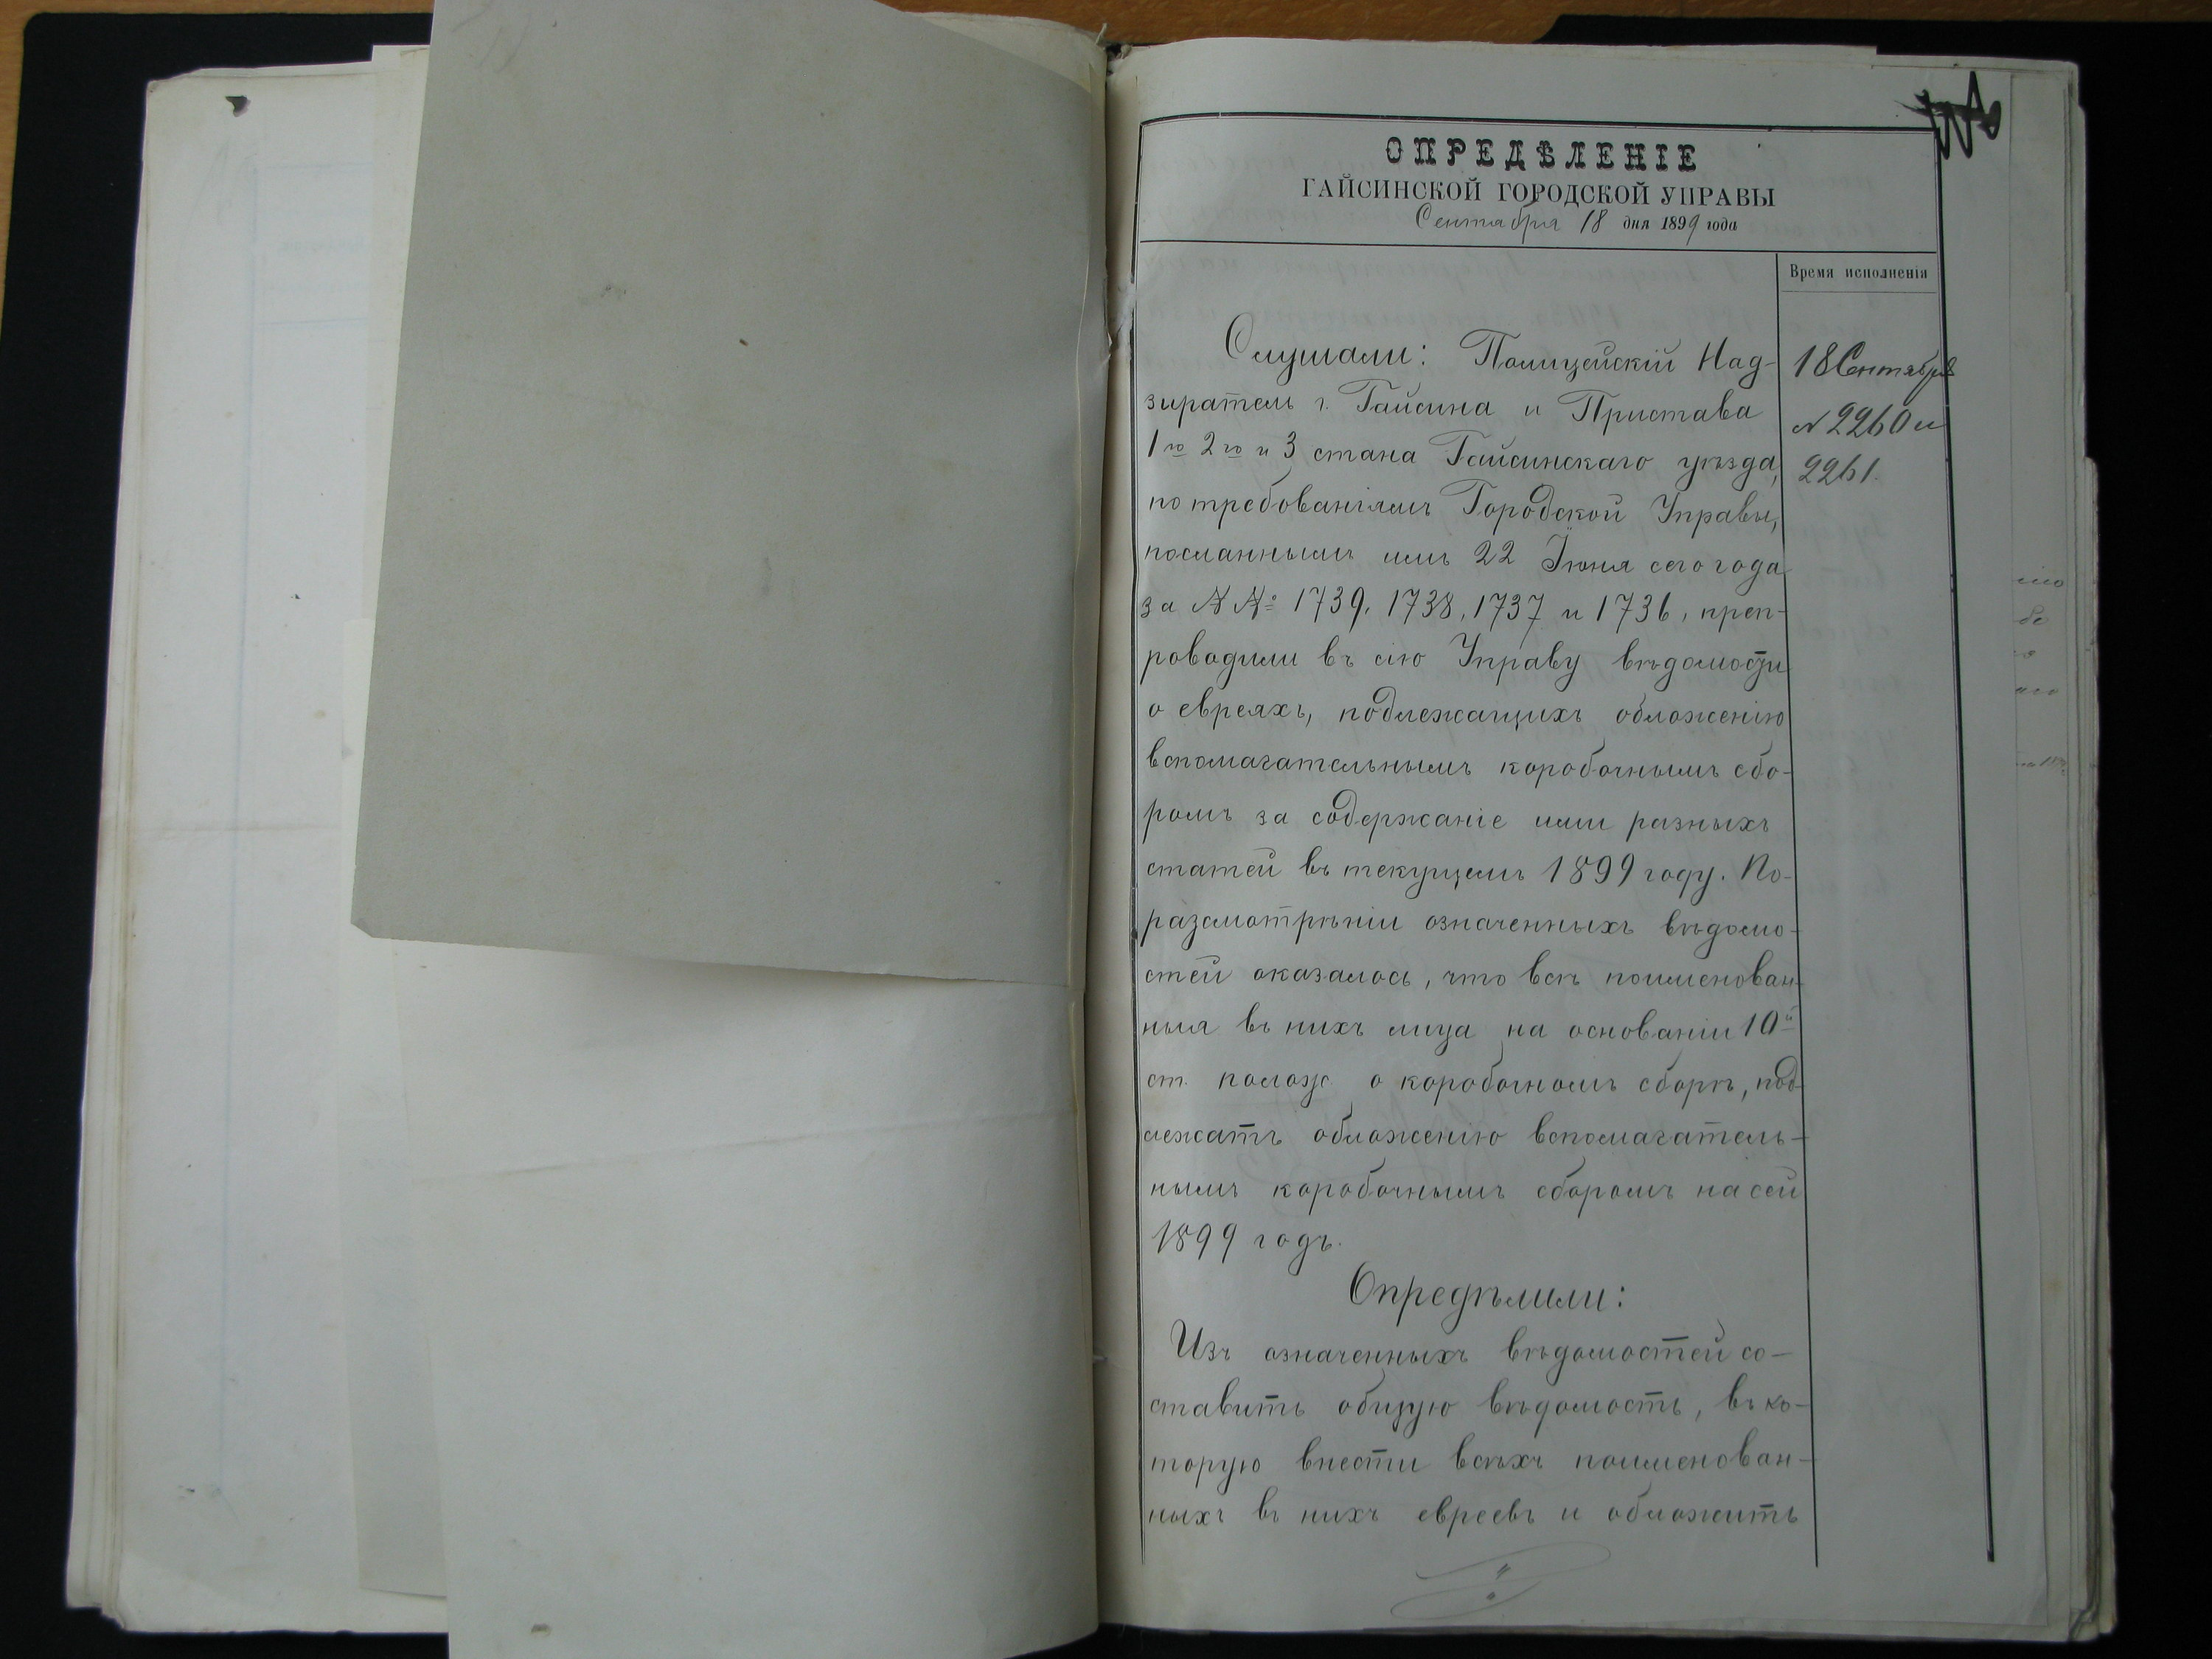 ОПРЕДѢЛЕНІЕ
ГАЙСИНСКОЙ ГОРОДСКОЙ УПРАВЫ
Сентября 18 дня 1899 года
Время исполненія
Слушали: Полицейскій Над-
зиратель г. Гайсина и Пристава
1го 2го и 3 стана Гайсинскаго уѣзда,
по требованіямъ Городской Управы,
посланнымъ имъ 22 Іюня сего года
за №№ 1739, 1738, 1737 и 1736, преп-
роводили въ сію Управу вѣдомости
о евреяхъ, подлежащихъ обложенію
вспомагательнымъ коробочнымъ сбо-
ромъ за содержаніе ими разныхъ
статей въ текущемъ 1899 году. По-
разсмотрѣніи означенныхъ вѣдомо-
стей оказалось, что всѣ поименован-
ныя въ нихъ лица на основаніи 10й
ст. полож. о коробочномъ сборѣ, под-
лежатъ обложенію вспомагатель-
нымъ коробочнымъ сборомъ на сей
1899 годъ.
Опредѣлили:
Изъ означенныхъ вѣдомостей со-
ставить общую вѣдомость, въ ко-
торую внести всѣхъ поименован-
ныхъ въ нихъ евреевъ и обложить
18 Сентября
№ 2260 и
2261.